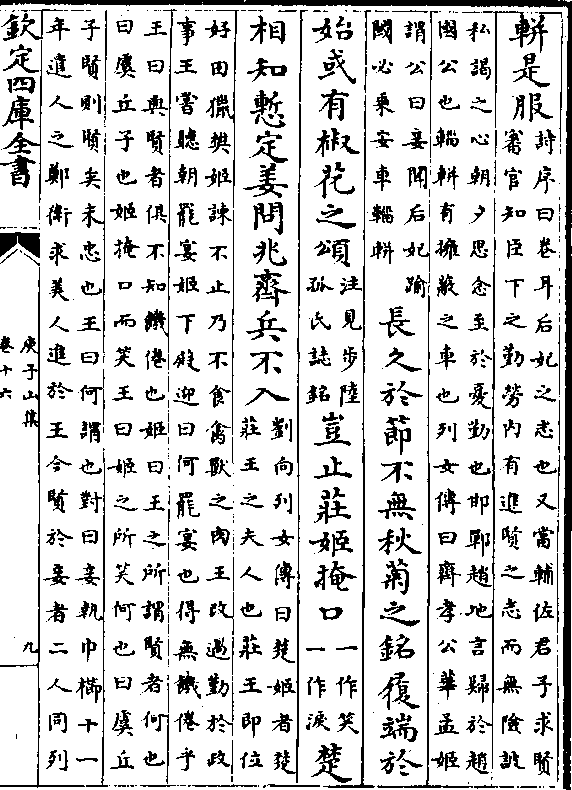 輧是服
詩序曰卷耳后妃之志也又當輔佐君子求賢
審官知臣下之勤勞内有進賢之志而無險詖
私謁之心朝夕思念至於憂勤也邯鄲趙地言歸於趙
國公也輜輧有擁蔽之車也列女傳曰齊孝公華孟姬
謂公曰妾聞后妃踰
國必乘安車輜輧
長久於節不無秋菊之銘履端於
始或有椒花之頌
注見步陸
孤氏誌銘
豈止莊姬掩口
一作笑
一作淚
楚
相知慙定姜問兆齊兵不入
劉向列女傳曰楚姬者楚
莊王之夫人也莊王即位
好田獵樊姬諫不止乃不食禽獸之肉王改過勤於政
事王嘗聽朝罷宴姬下殿迎曰何罷宴也得無饑倦乎
王曰與賢者俱不知饑倦也姬曰王之所謂賢者何也
曰虞丘子也姬掩口而笑王曰姬之所笑何也曰虞丘
子賢則賢矣未忠也王曰何謂也對曰妾執巾櫛十一
年遣人之鄭衛求美人進於王今賢於妾者二人同列
欽定四庫全書
庾子山集
卷十六
九